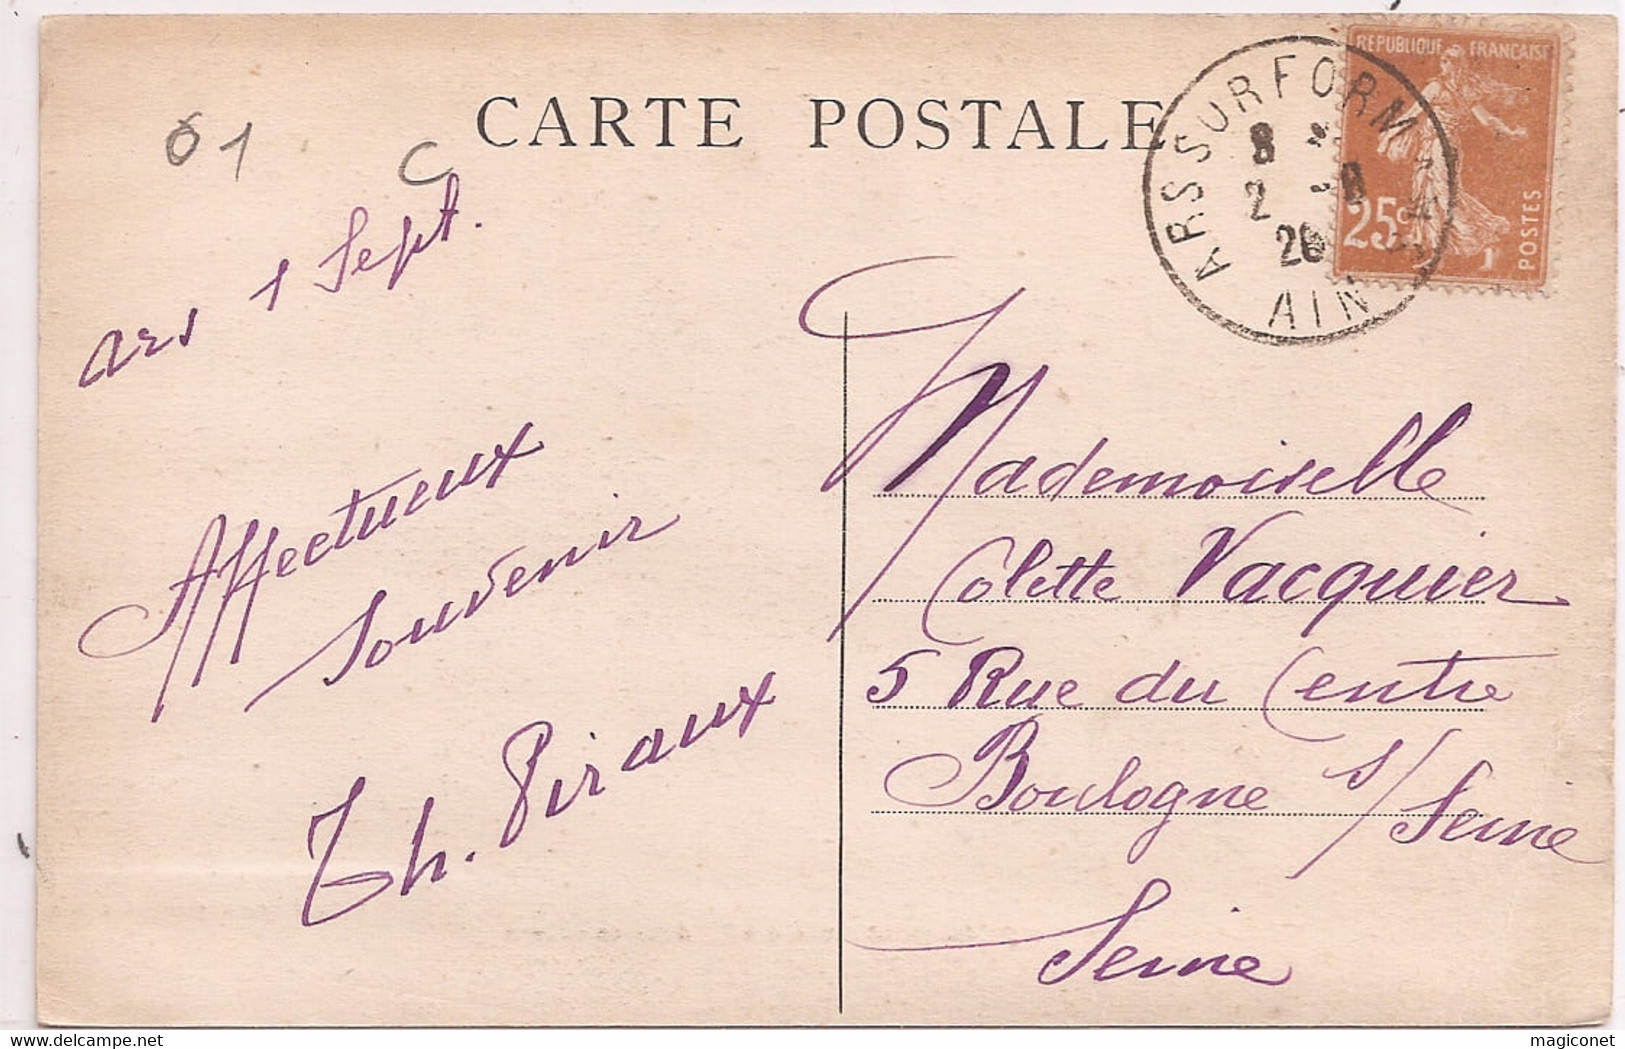 CARTE POSTALE
REPUBLIQUE FRANCAISE
25c
POSTES
ARS SUR FORM
8
2 - 8
26
AIN
01
C
Ars 1 Sept.
Affectueux
Souvenir
Th. Piraux
Mademoiselle
Colette Vacquier
5 Rue du Centre
Boulogne s/Seine
Seine
magiconet